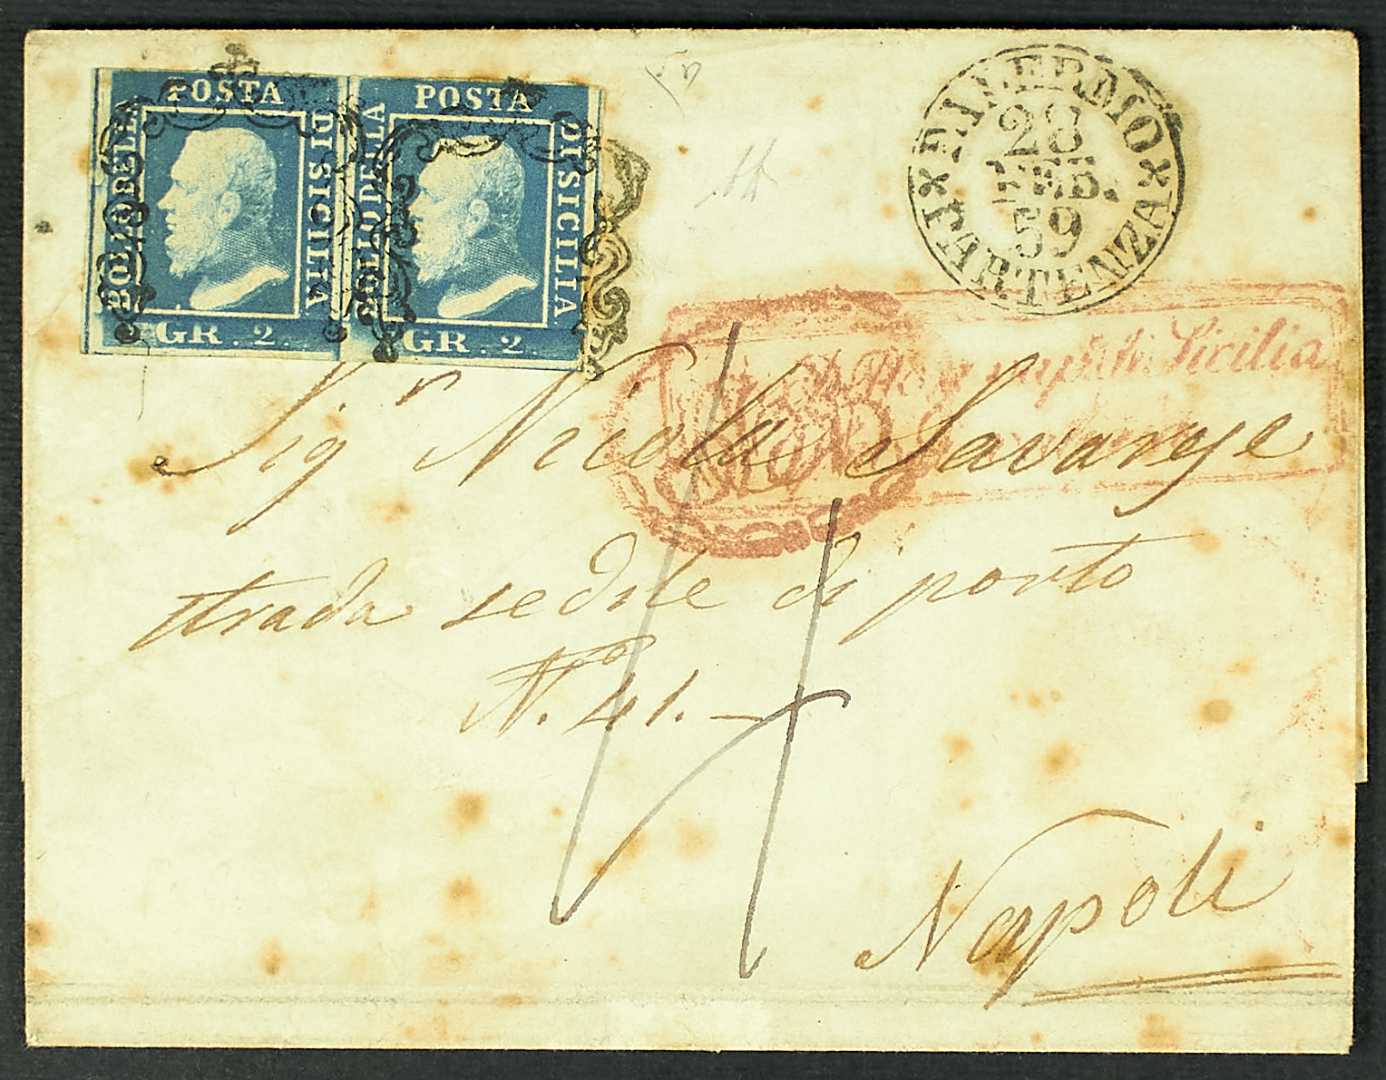 POSTA
BOLLO DELLA
DI SICILIA
GR. 2.
POSTA
BOLLO DELLA
DI SICILIA
GR. 2.
PALERMO
28
FEB.
59
PARTENZA
Sicilia
Sigr Nicola Savarese
strada sedile di porto
No. 41.
Napoli